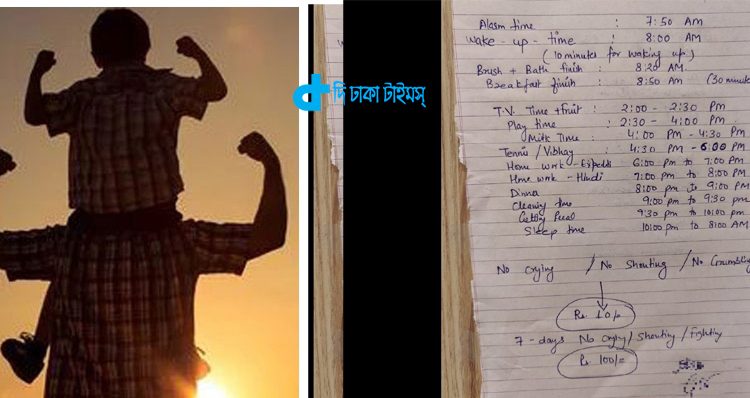 দি ঢাকা টাইমস্
Alarm time : 7:50 AM
Wake-up-time : 8:00 AM
(10 minutes for waking up)
Brush + Bath finish : 8:20 AM
Breakfast finish : 8:50 AM (30 minute
T.V. Time + fruit : 2:00 - 2:30 PM
Play time : 2:30 - 4:00 PM
Milk Time : 4:00 PM - 4:30 PM
Tennis / Vibhay : 4:30 PM - 6:00 PM
Home work - : 6:00 pm to 7:00 PM
Home work - Hindi : 7:00 pm to 8:00 PM
Dinner : 8:00 pm to 9:00 PM
Cleaning time : 9:00 pm to 9:30 pm
: 9:30 pm to 10:00 pm
Sleep time : 10:00 pm to 8:00 AM
No crying / No Shouting / No
Rs. 10/-
7-days No crying / Shouting / fighting
Rs. 100/=